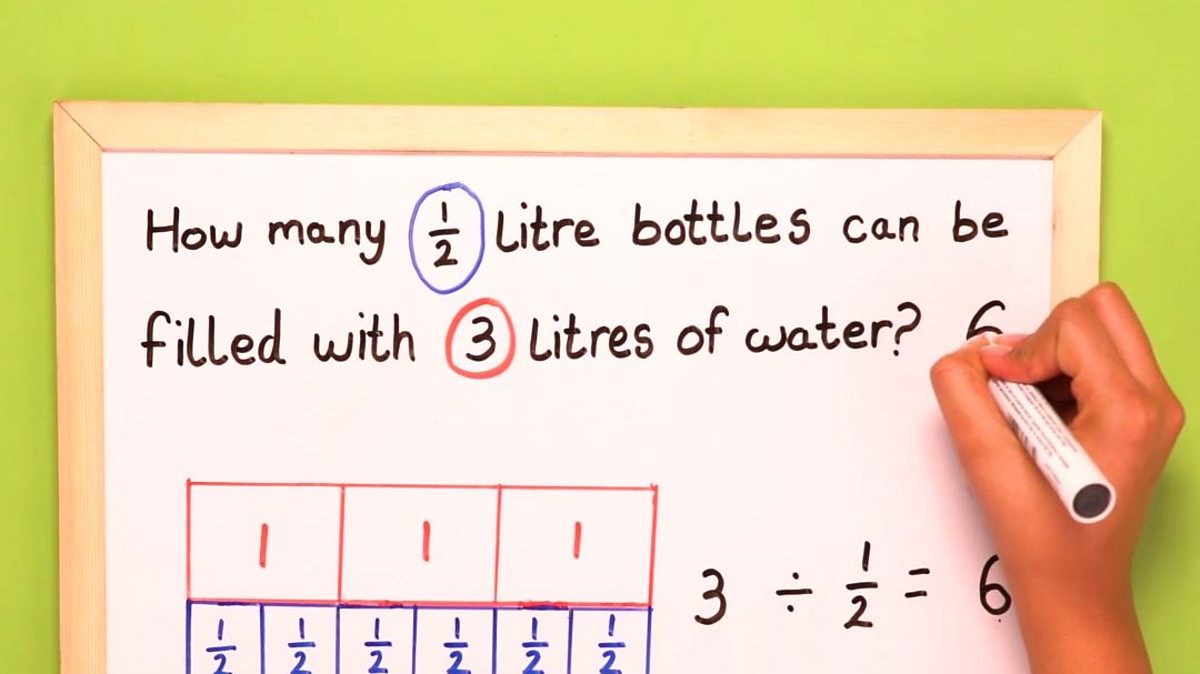 How many 1/2 Litre bottles can be
filled with 3 Litres of water? 6
1 1 1
3 ÷ 1/2 = 6
1/2 1/2 1/2 1/2 1/2 1/2